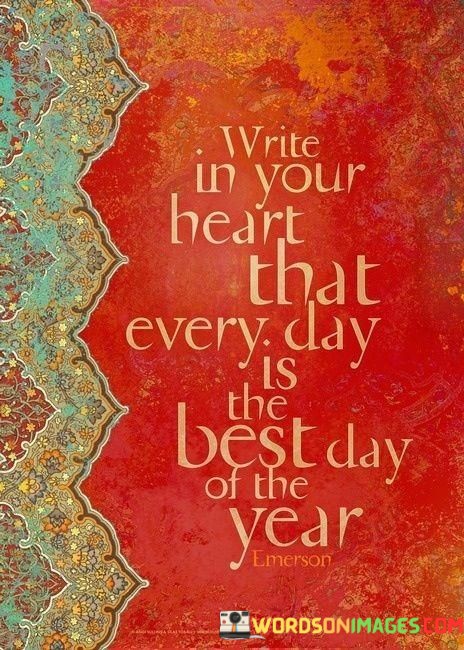 Write
in your
heart
that
every day
is
the
best day
of the
year
Emerson
WORDSONIMAGES.COM